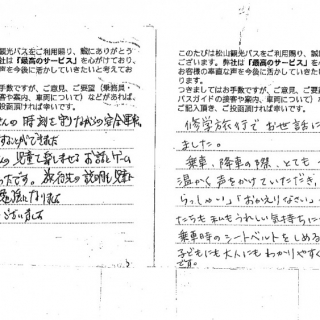 観光バスをご利用賜り、誠にありがとう
弊社は「最高のサービス」を心がけており、
声を今後に活かしていきたいと考えてお
手数ですが、ご意見、ご要望（乗務員・
客や案内、車両について）などがあれば、
ご投函頂ければ幸いです。
さんの時刻を守りながらの安全運転
することができました
の児童を楽しませるお話とゲーム
ったです。旅行先の説明も児童
勉強になりました
ございました
このたびは松山観光バスをご利用賜り、誠
ございます。弊社は「最高のサービス」を心
お客様の率直な声を今後に活かしていきた
つきましてはお手数ですが、ご意見、ご要
バスガイドの接客や案内、車両について）な
ご記入頂き、ご投函頂ければ幸いです。
修学旅行でお世話に
ました。
乗車、降車の際、とても
温かく声をかけていただき、
らっしゃい」「おかえりなさい」
たちも私もうれしい気持ちに
乗車時のシートベルトをしめる
子どもにも大人にもわかりやすく
です。